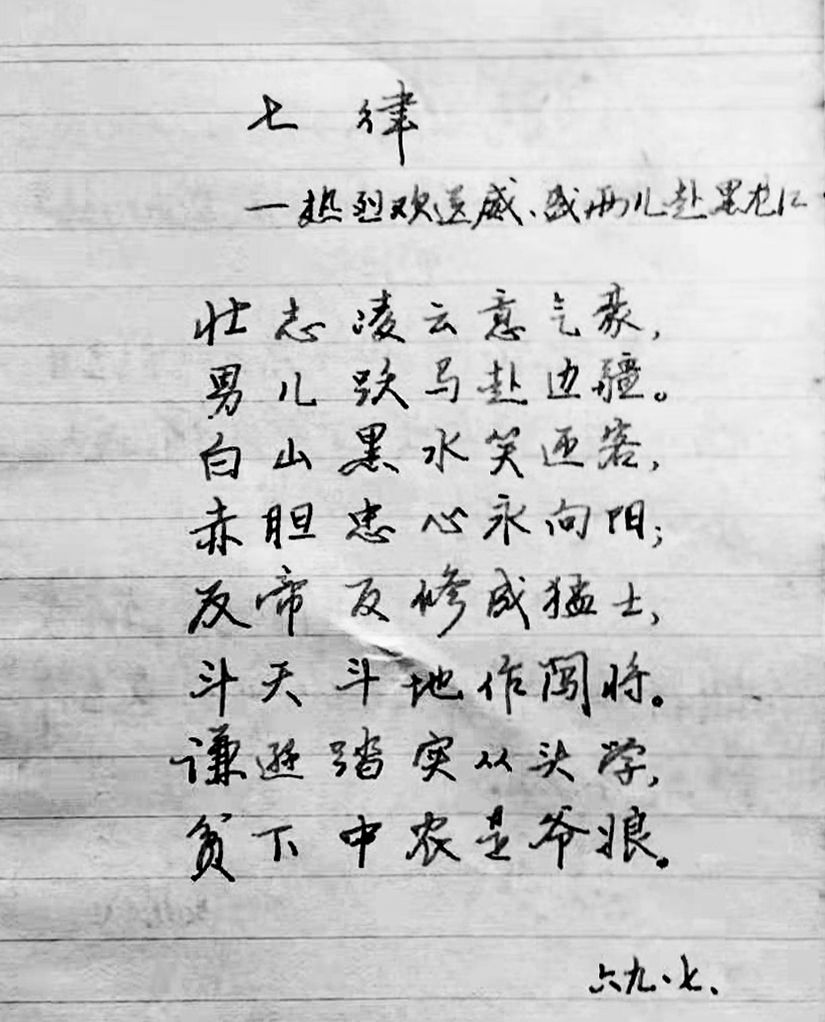 七律
—热烈欢送威、盛两儿赴黑龙江
壮志凌云意气豪,
男儿跃马赴边疆。
白山黑水笑迎客,
赤胆忠心永向阳;
反帝反修成猛士,
斗天斗地作闯将。
谦逊踏实从头学,
贫下中农是爷娘。
六九.七、